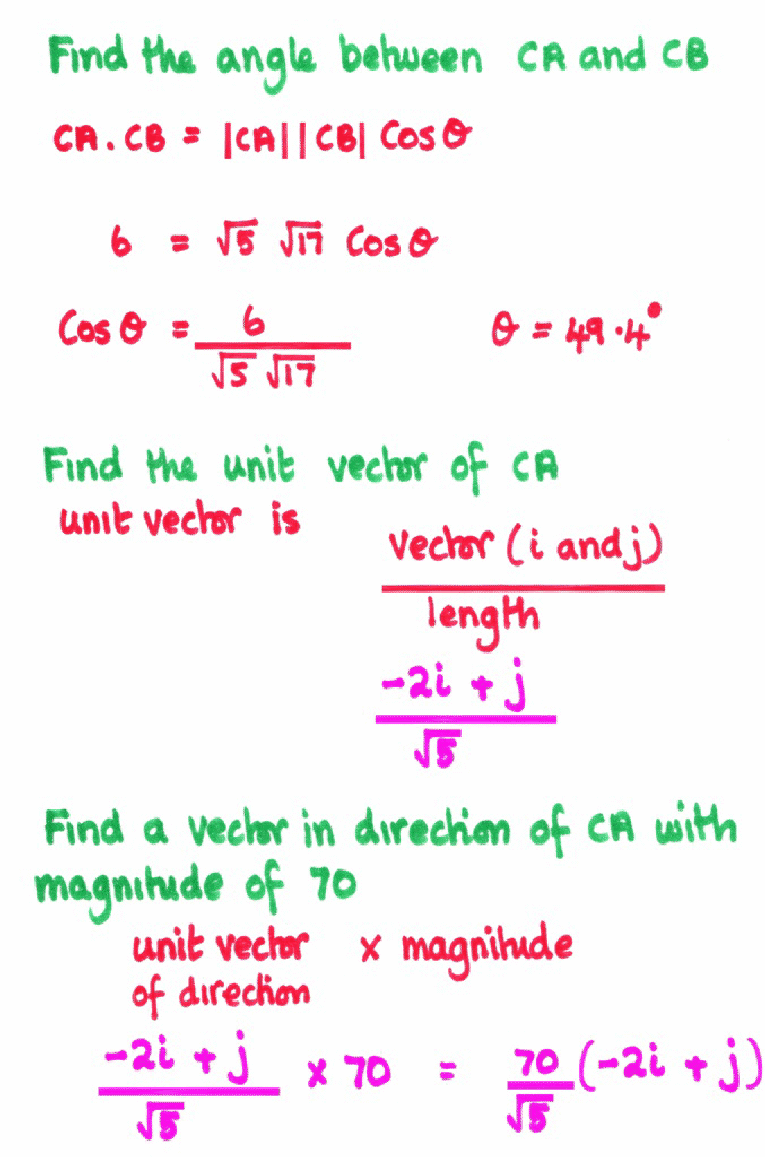 Find the angle between CA and CB
CA . CB = |CA| |CB| Cos θ
6 = √5 √17 Cos θ
Cos θ = 6 / √5 √17    θ = 49.4°
Find the unit vector of CA
unit vector is
vector (i and j)
length
-2i + j
√5
Find a vector in direction of CA with
magnitude of 70
unit vector x magnitude
of direction
-2i + j / √5 x 70 = 70 / √5 (-2i + j)